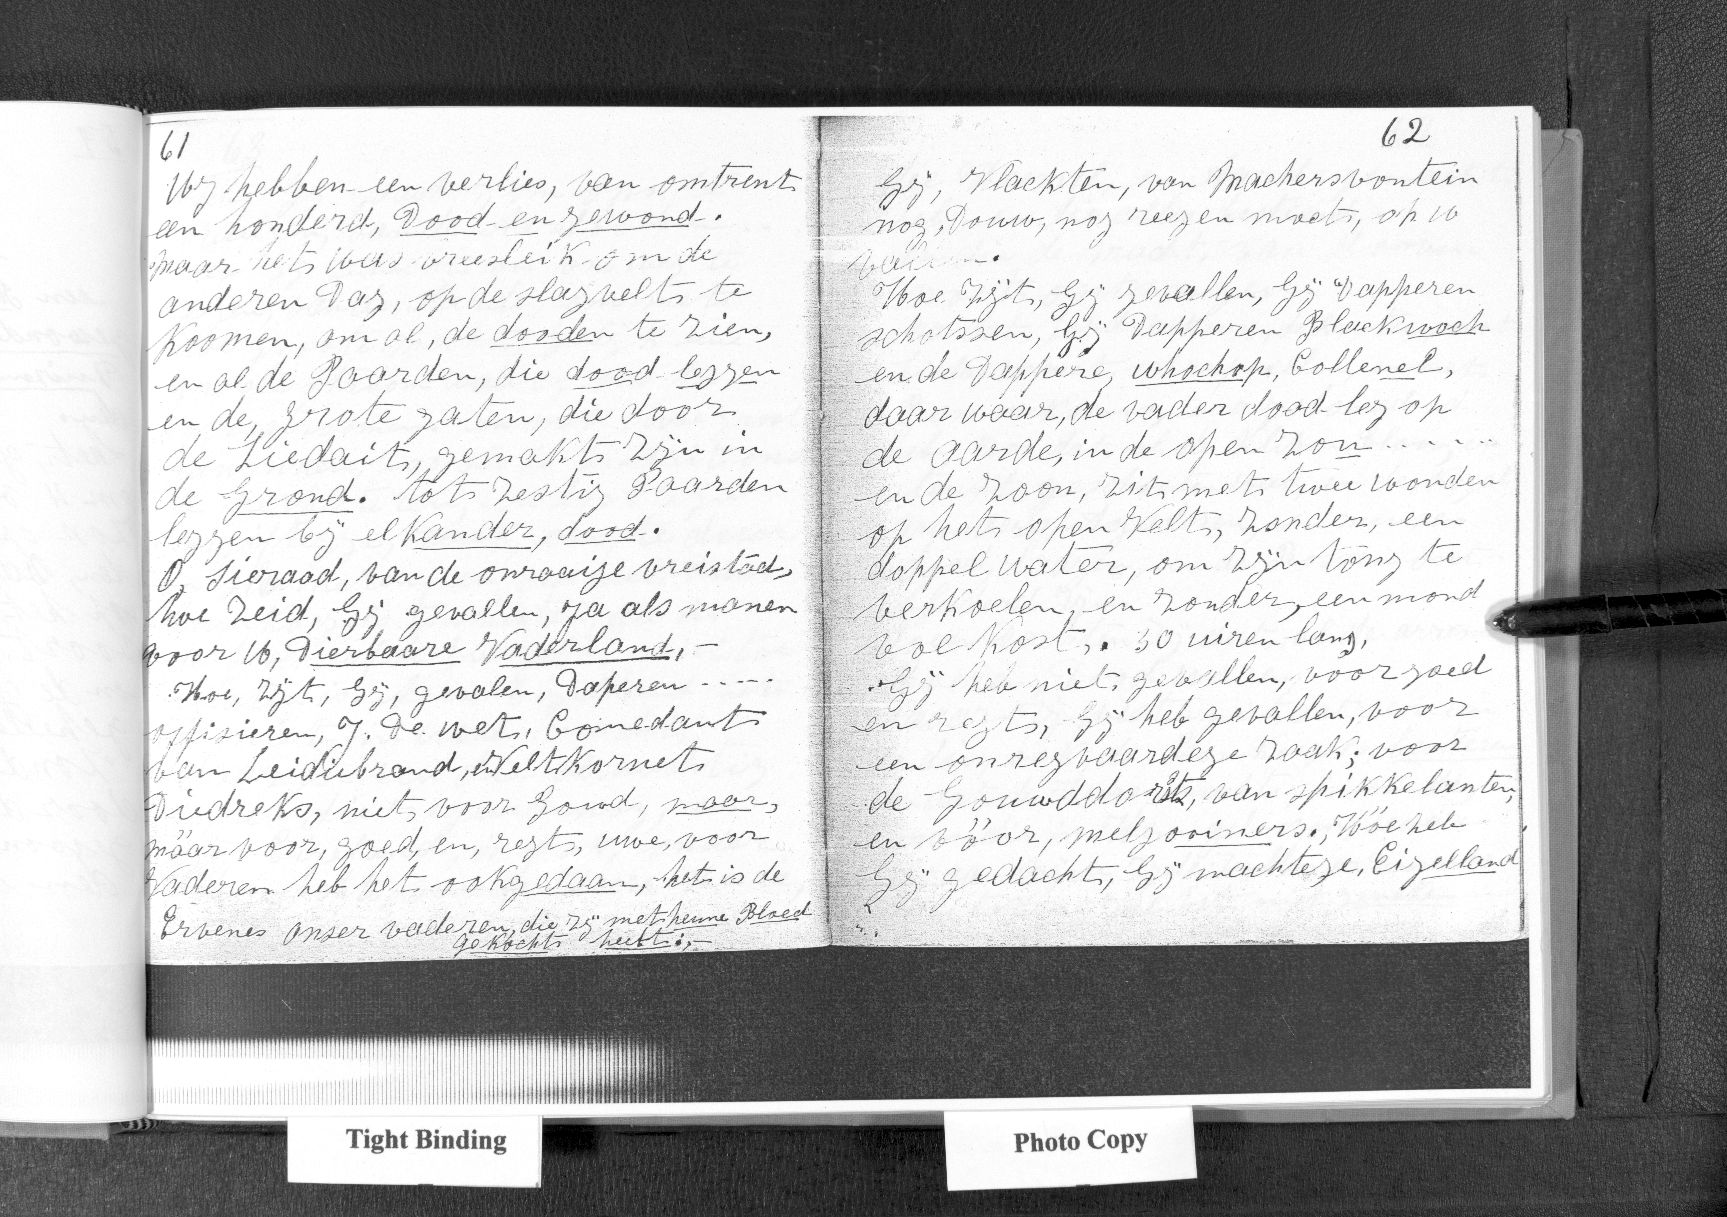 61
Wy hebben een verlies, van omtrent
een honderd, Dood en gewond.
maar het was vreesleik om de
anderen Dag, op de slagvelt te
Koomen, om al, de dooden te zien,
en al de Paarden, die dood leggen
en de, grote gaten, die door
de Liedait, gemakt zÿn in
de Grond. tot zestig Paarden
leggen bÿ elkander, dood.
O, Sieraad, van de onraaije vreistad,
hoe zeid, Gÿ gevallen, ja als manen
voor W, Dierbaare Vaderland, –
Hoe, zÿt, Gÿ, gevalen, Daperen -----
offisieren, J. De wet, Comedant
van Leidübrand, en Veltkornet
Diedreks, niet voor Gowd, maar,
määr voor, goed, en, regt, uwe, voor
Vaderen heb het ookgedaan, het is de
Ervenes onser vaderen, die zÿ met heune Bloed
gekocht heeft:,–
62
Gÿ, Vlackten, van Machersvontein
nog, Douw, nog reegen moet, op w
Hoe zÿt, Gÿ gevallen, Gÿ Dapperen
schotssen, Gÿ Dapperen Blackwoch
en de Dappere, whochop, Collenel,
daar waar, de vader dood leg op
de aarde, in de open zon ------
en de zoon, zit met twee wonden
op het open Velt, zonder, een
doppel water, om zÿn tong te
verkoelen, en zonder, een mond
vol kost,. 30 uiren lang,
Gÿ heb niet gevallen, voor goed
en regt, Gÿ heb gevallen, voor
een onregvaardege zaak; voor
de Gouwddorst, van spikkelanten,
en vöör, meljooiners., Wöe heb
Gÿ gedacht, Gÿ machtege, Eigelland
Tight Binding
Photo Copy